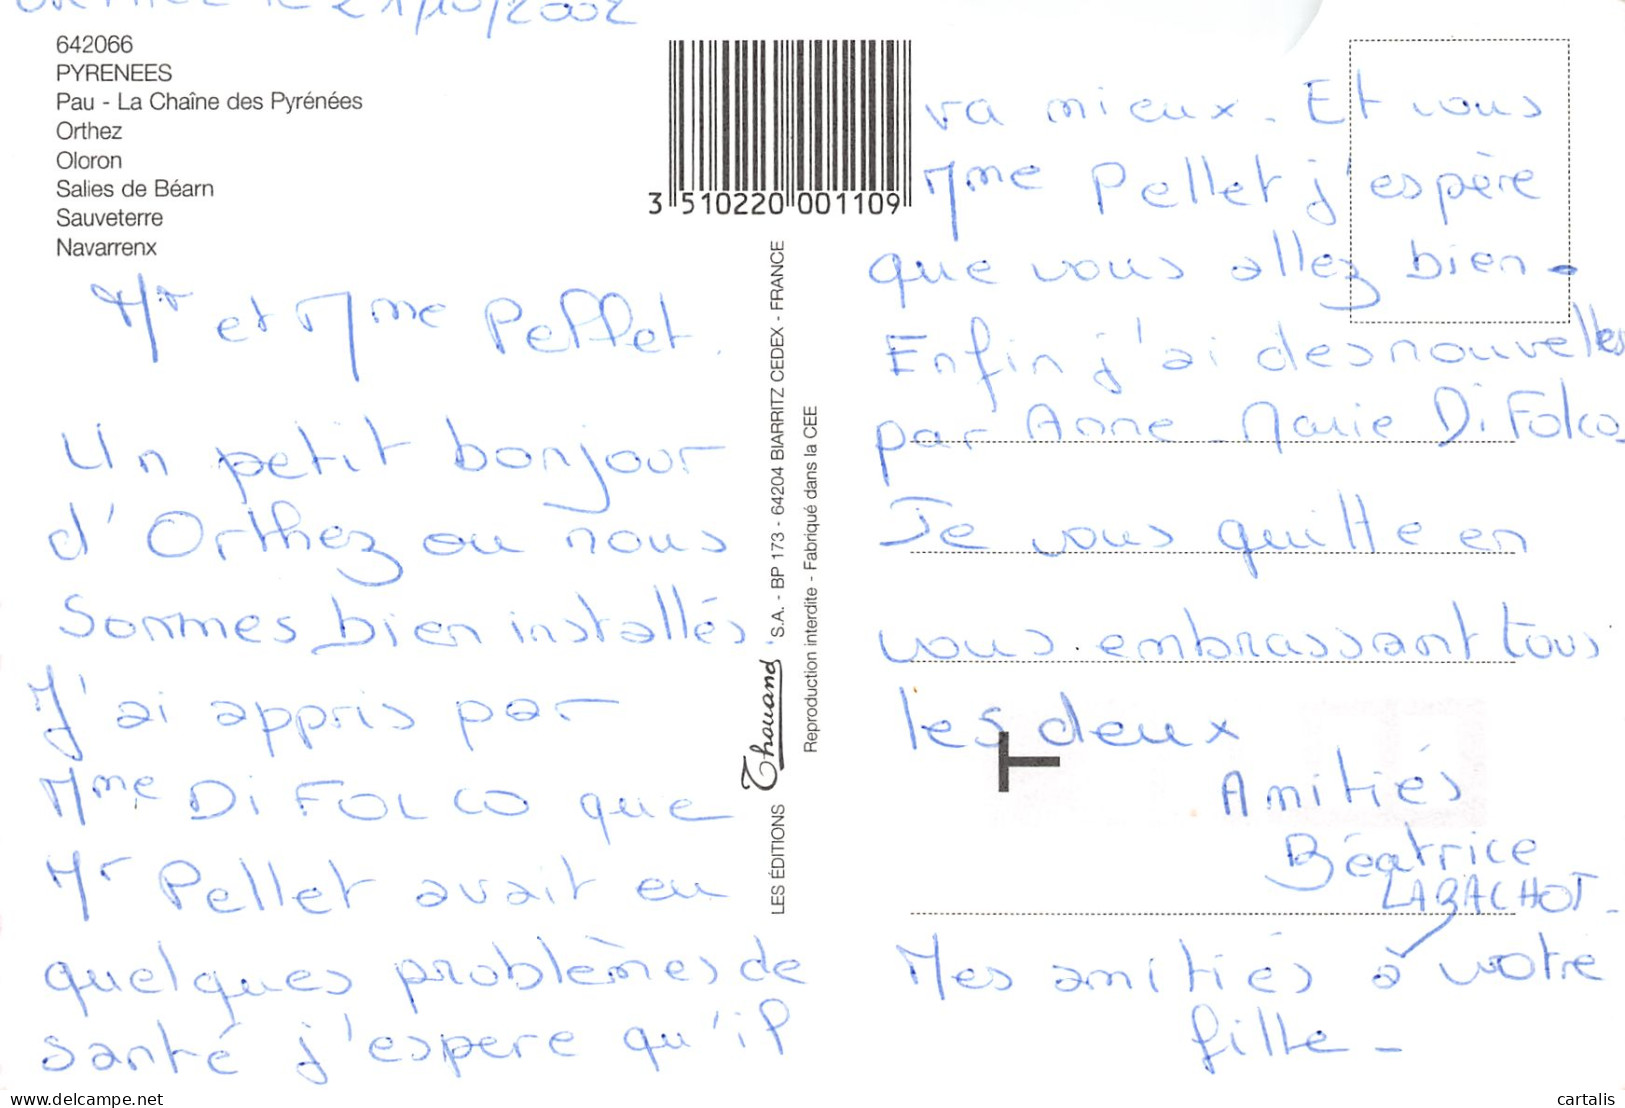 Orthez le 21/10/2002
642066
PYRENEES
Pau - La Chaîne des Pyrénées
Orthez
Oloron
Salies de Béarn
Sauveterre
Navarrenx
Mr et Mme Pellet.
Un petit bonjour
d'Orthez ou nous
Sommes bien installés.
J'ai appris par
Mme Di FOLCO que
Mr Pellet avait eu
quelques problèmes de
santé j'espere qu'il
3 510220 001109
LES ÉDITIONS Thouand S.A. - BP 173 - 64204 BIARRITZ CEDEX - FRANCE
Reproduction interdite - Fabriqué dans la CEE
va mieux. Et vous
Mme Pellet j'espère
que vous allez bien -
Enfin j'ai des nouvelles
par Anne-Marie Di Folco.
Je vous quitte en
vous embrassant tous
les deux
T
Amitiés
Béatrice
LABACHOT -
Mes amitiés à votre
fille -
delcampe.net
cartalis